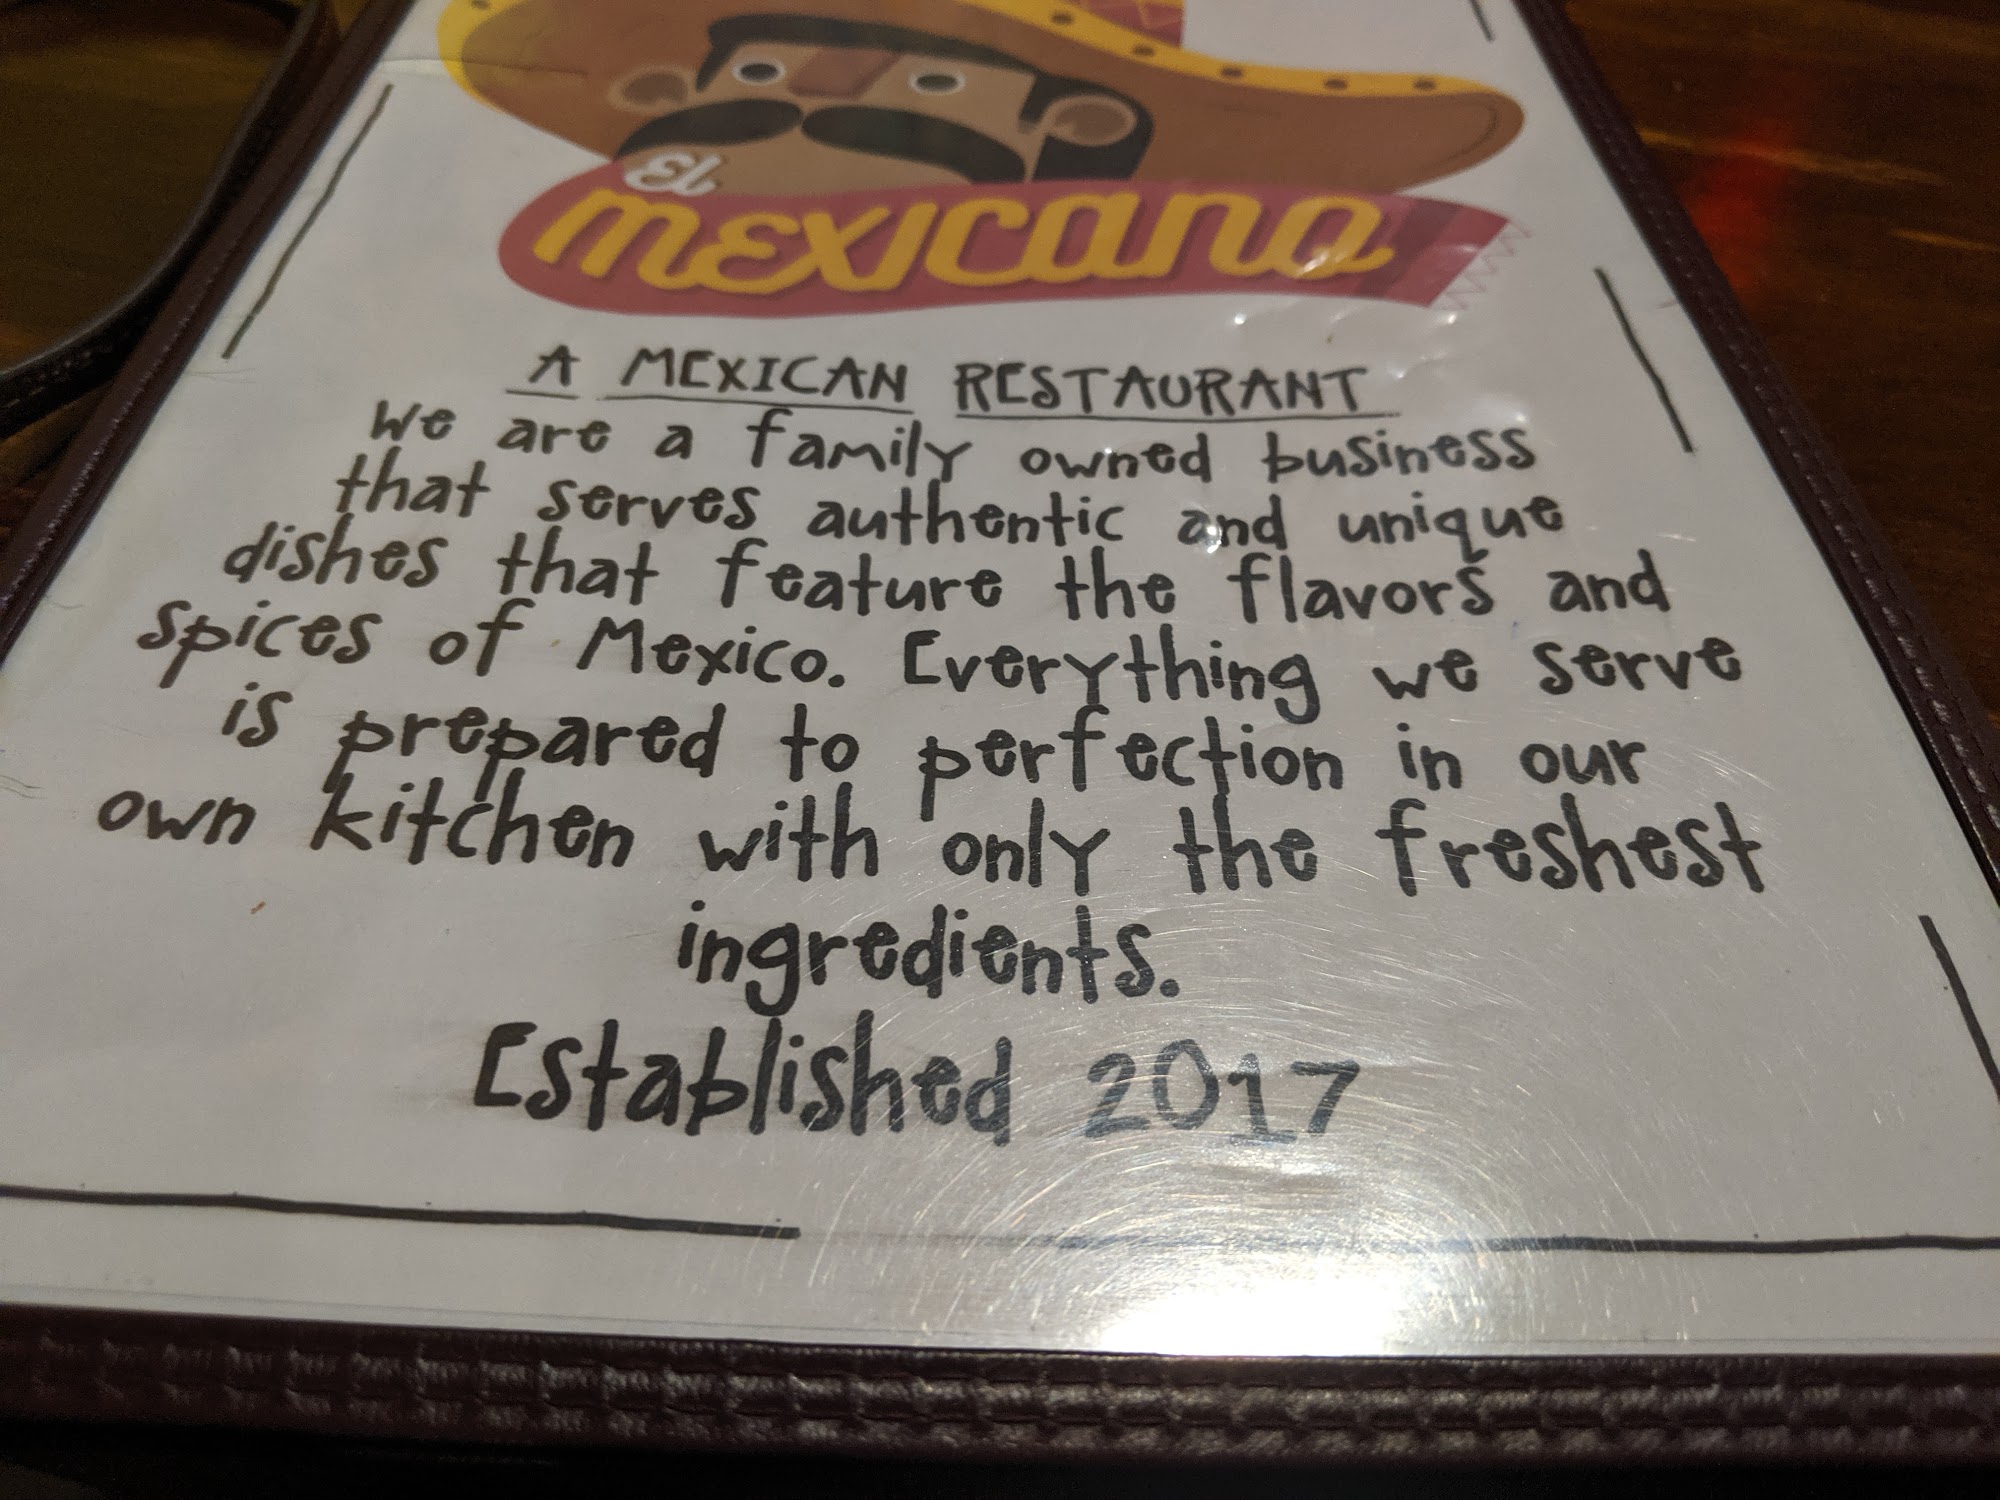 El
mexicano
A MEXICAN RESTAURANT
We are a family owned business
that serves authentic and unique
dishes that feature the flavors and
spices of Mexico. Everything we serve
is prepared to perfection in our
own kitchen with only the freshest
ingredients.
Established 2017